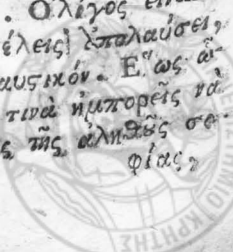 . Ὀλίγος εἶνα
έλεις ἀπολαύσει,
αυσικόν. Ἕως ἄ-
τινὰ ἠμπορεῖς νὰ
ς τῆς ἀληθοῦς σο-
φίας,
ΚΡΗΤΗΣ